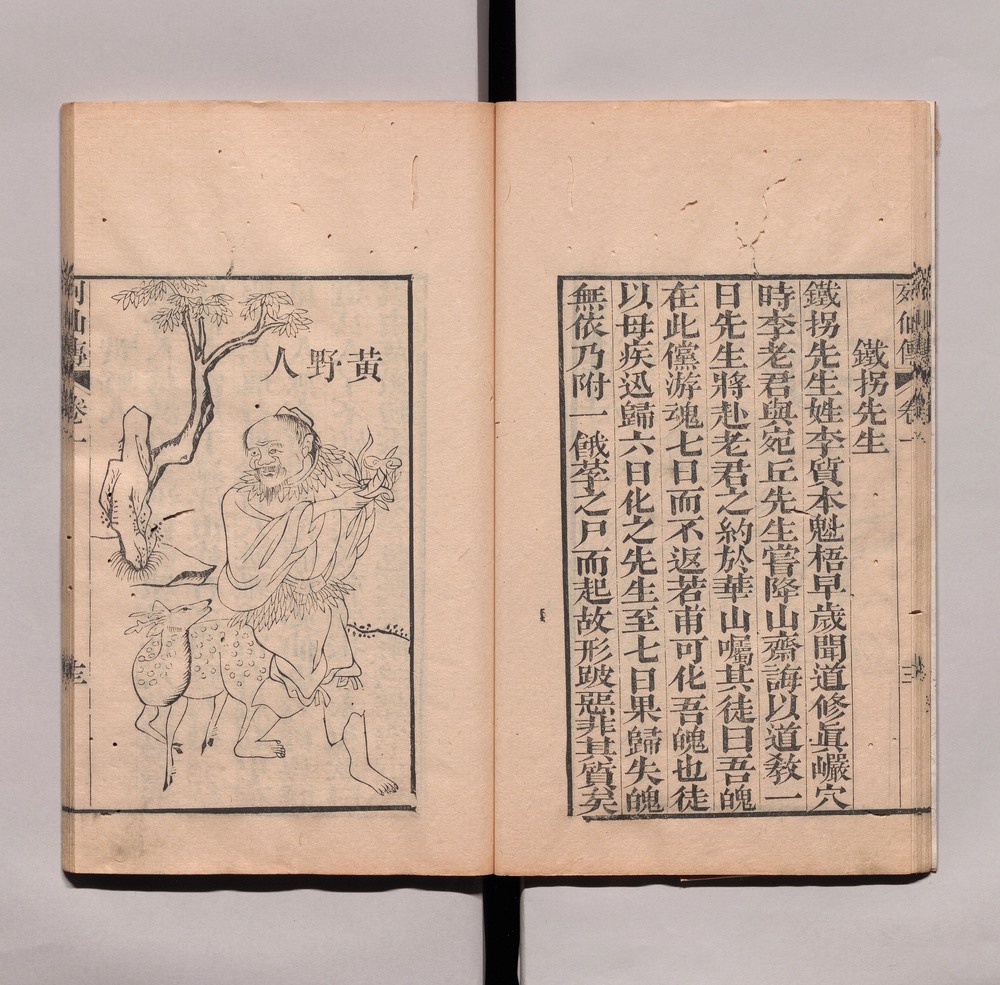 鐵拐先生
鐵拐先生姓李質本魁梧早歲聞道修眞巖穴
時李老君與宛丘先生嘗降山齋誨以道教一
日先生將赴老君之約於華山囑其徒曰吾魄
在此儻游魂七日而不返若甫可化吾魄也徒
以母疾迅歸六日化之先生至七日果歸失魄
無依乃附一餓莩之尸而起故形跛惡非其質矣
列仙傳
卷一
三
黃野人
列仙傳
卷一